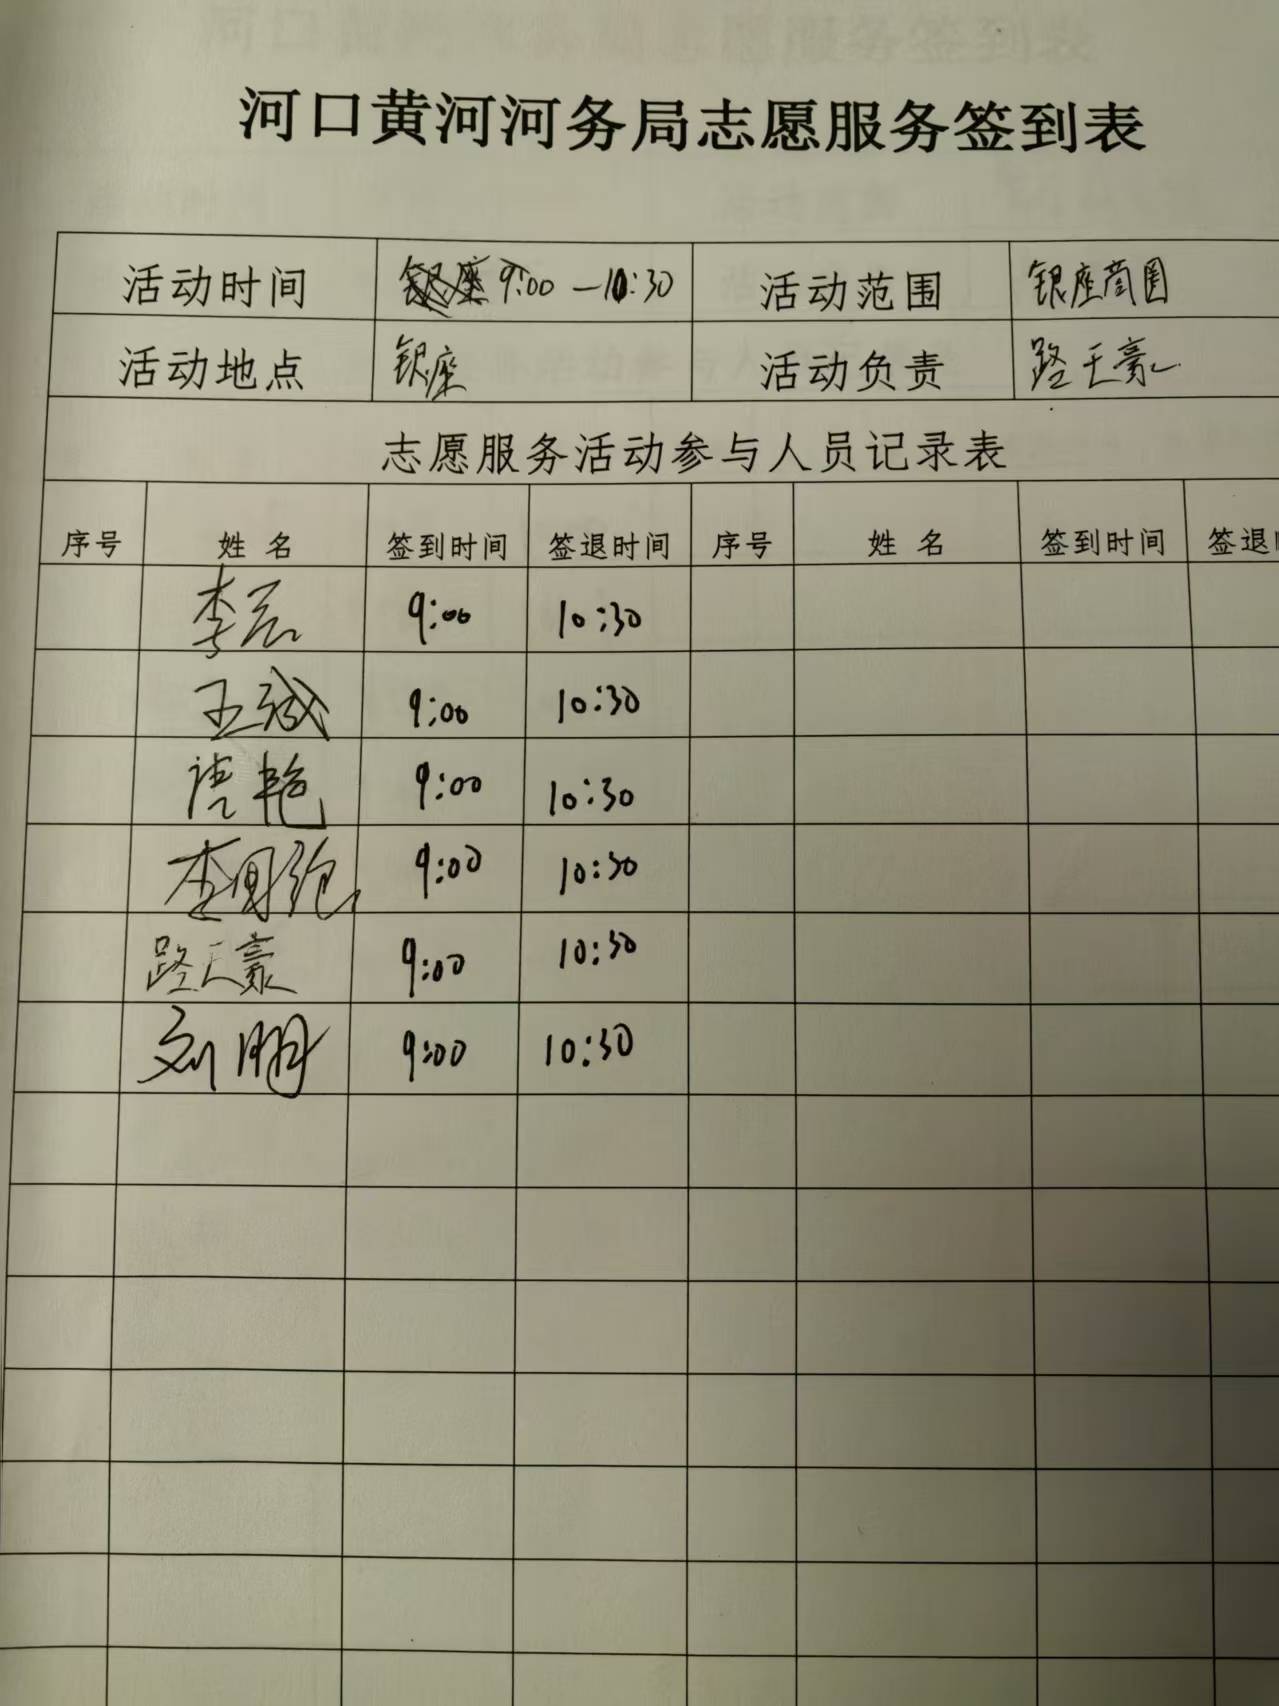 河口黄河河务局志愿服务签到表
活动时间 9:00—10:30 活动范围 银座商圈
活动地点 银座 活动负责 路天豪
志愿服务活动参与人员记录表
序号 姓名 签到时间 签退时间 序号 姓名 签到时间 签退
李 9:00 10:30
王 9:00 10:30
艳 9:00 10:30
李国 9:00 10:30
路天豪 9:00 10:30
刘鹏 9:00 10:30